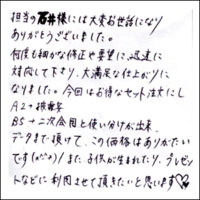 担当の石井様には大変お世話になり
ありがとうございました。
何度も細かな修正や要望に、迅速に
対応して下さり、大満足な仕上がりに
なりました。今回はお得なセット注文にし
A2→披露宴
B5→二次会用と使い分けが出来、
データまで頂けて、この価格はありがたい
です(^^)/ また、子供が生まれたり、プレゼン
トなどに利用させて頂きたいと思います♡